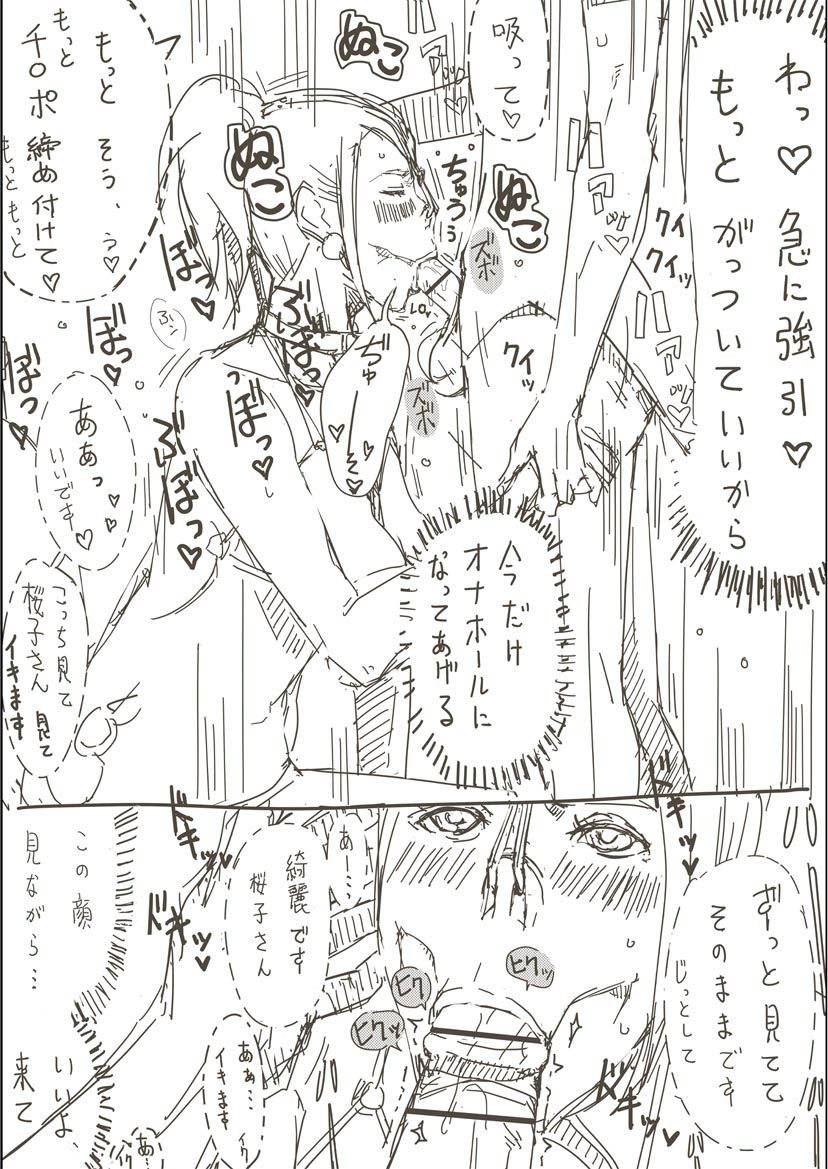 わっ♡
急に強引♡
もっと
がっついていいから
吸って♡
もっと
そう、う♡
もっと
チ○ポ締め付けて♡
もっともっと
ぬこ
ぬこ
ぬこ
ちゅうぅ
ズボ
ズボ
クイ
クイッ
クイッ
ハァ
ハァ
ぼっ♡
ぼっ♡
ぼっ♡
ぶぼっ♡
ぼっ♡
ぶぼっ♡
ああっ♡♡
いいです♡
こっち見て
桜子さん 見て
イキます
今だけ
オナホールに
なってあげる
ドキッ♥
ドキッ♥
ドキッ♥
ドキッ♥
ずっと見てて
そのままです
じっとして
あー…
綺麗です
桜子さん
ヒクッ
ヒク
ヒクッ
この顔
見ながら…
いいよ
来て
ああ…
イキます
あ…